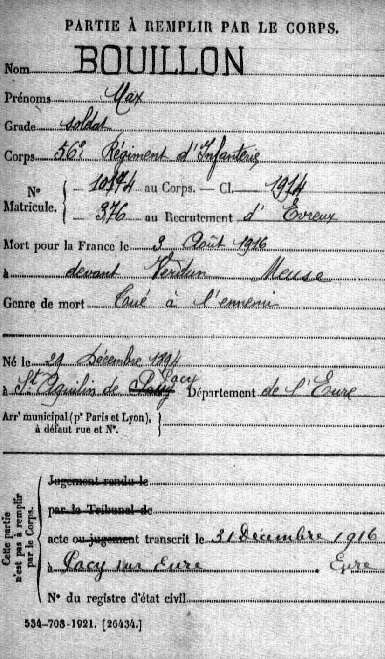 PARTIE À REMPLIR PAR LE CORPS.
Nom BOUILLON
Prénoms Max
Grade soldat
Corps 56e Régiment d'Infanterie
N° Matricule. { 10174 au Corps. — Cl. 1914
376 au Recrutement d' Evreux
Mort pour la France le 3 Août 1916
à devant Verdun Meuse
Genre de mort Tué à l'ennemi
Né le 29 Décembre 1894
à St Aquilin de Pacy Département de l'Eure
Arrt municipal (pr Paris et Lyon), à défaut rue et N°.
Cette partie n'est pas à remplir par le Corps.
Jugement rendu le
par le Tribunal de
acte ou jugement transcrit le 31 Décembre 1916
à Pacy sur Eure Eure
N° du registre d'état civil
534-708-1921. [26434.]